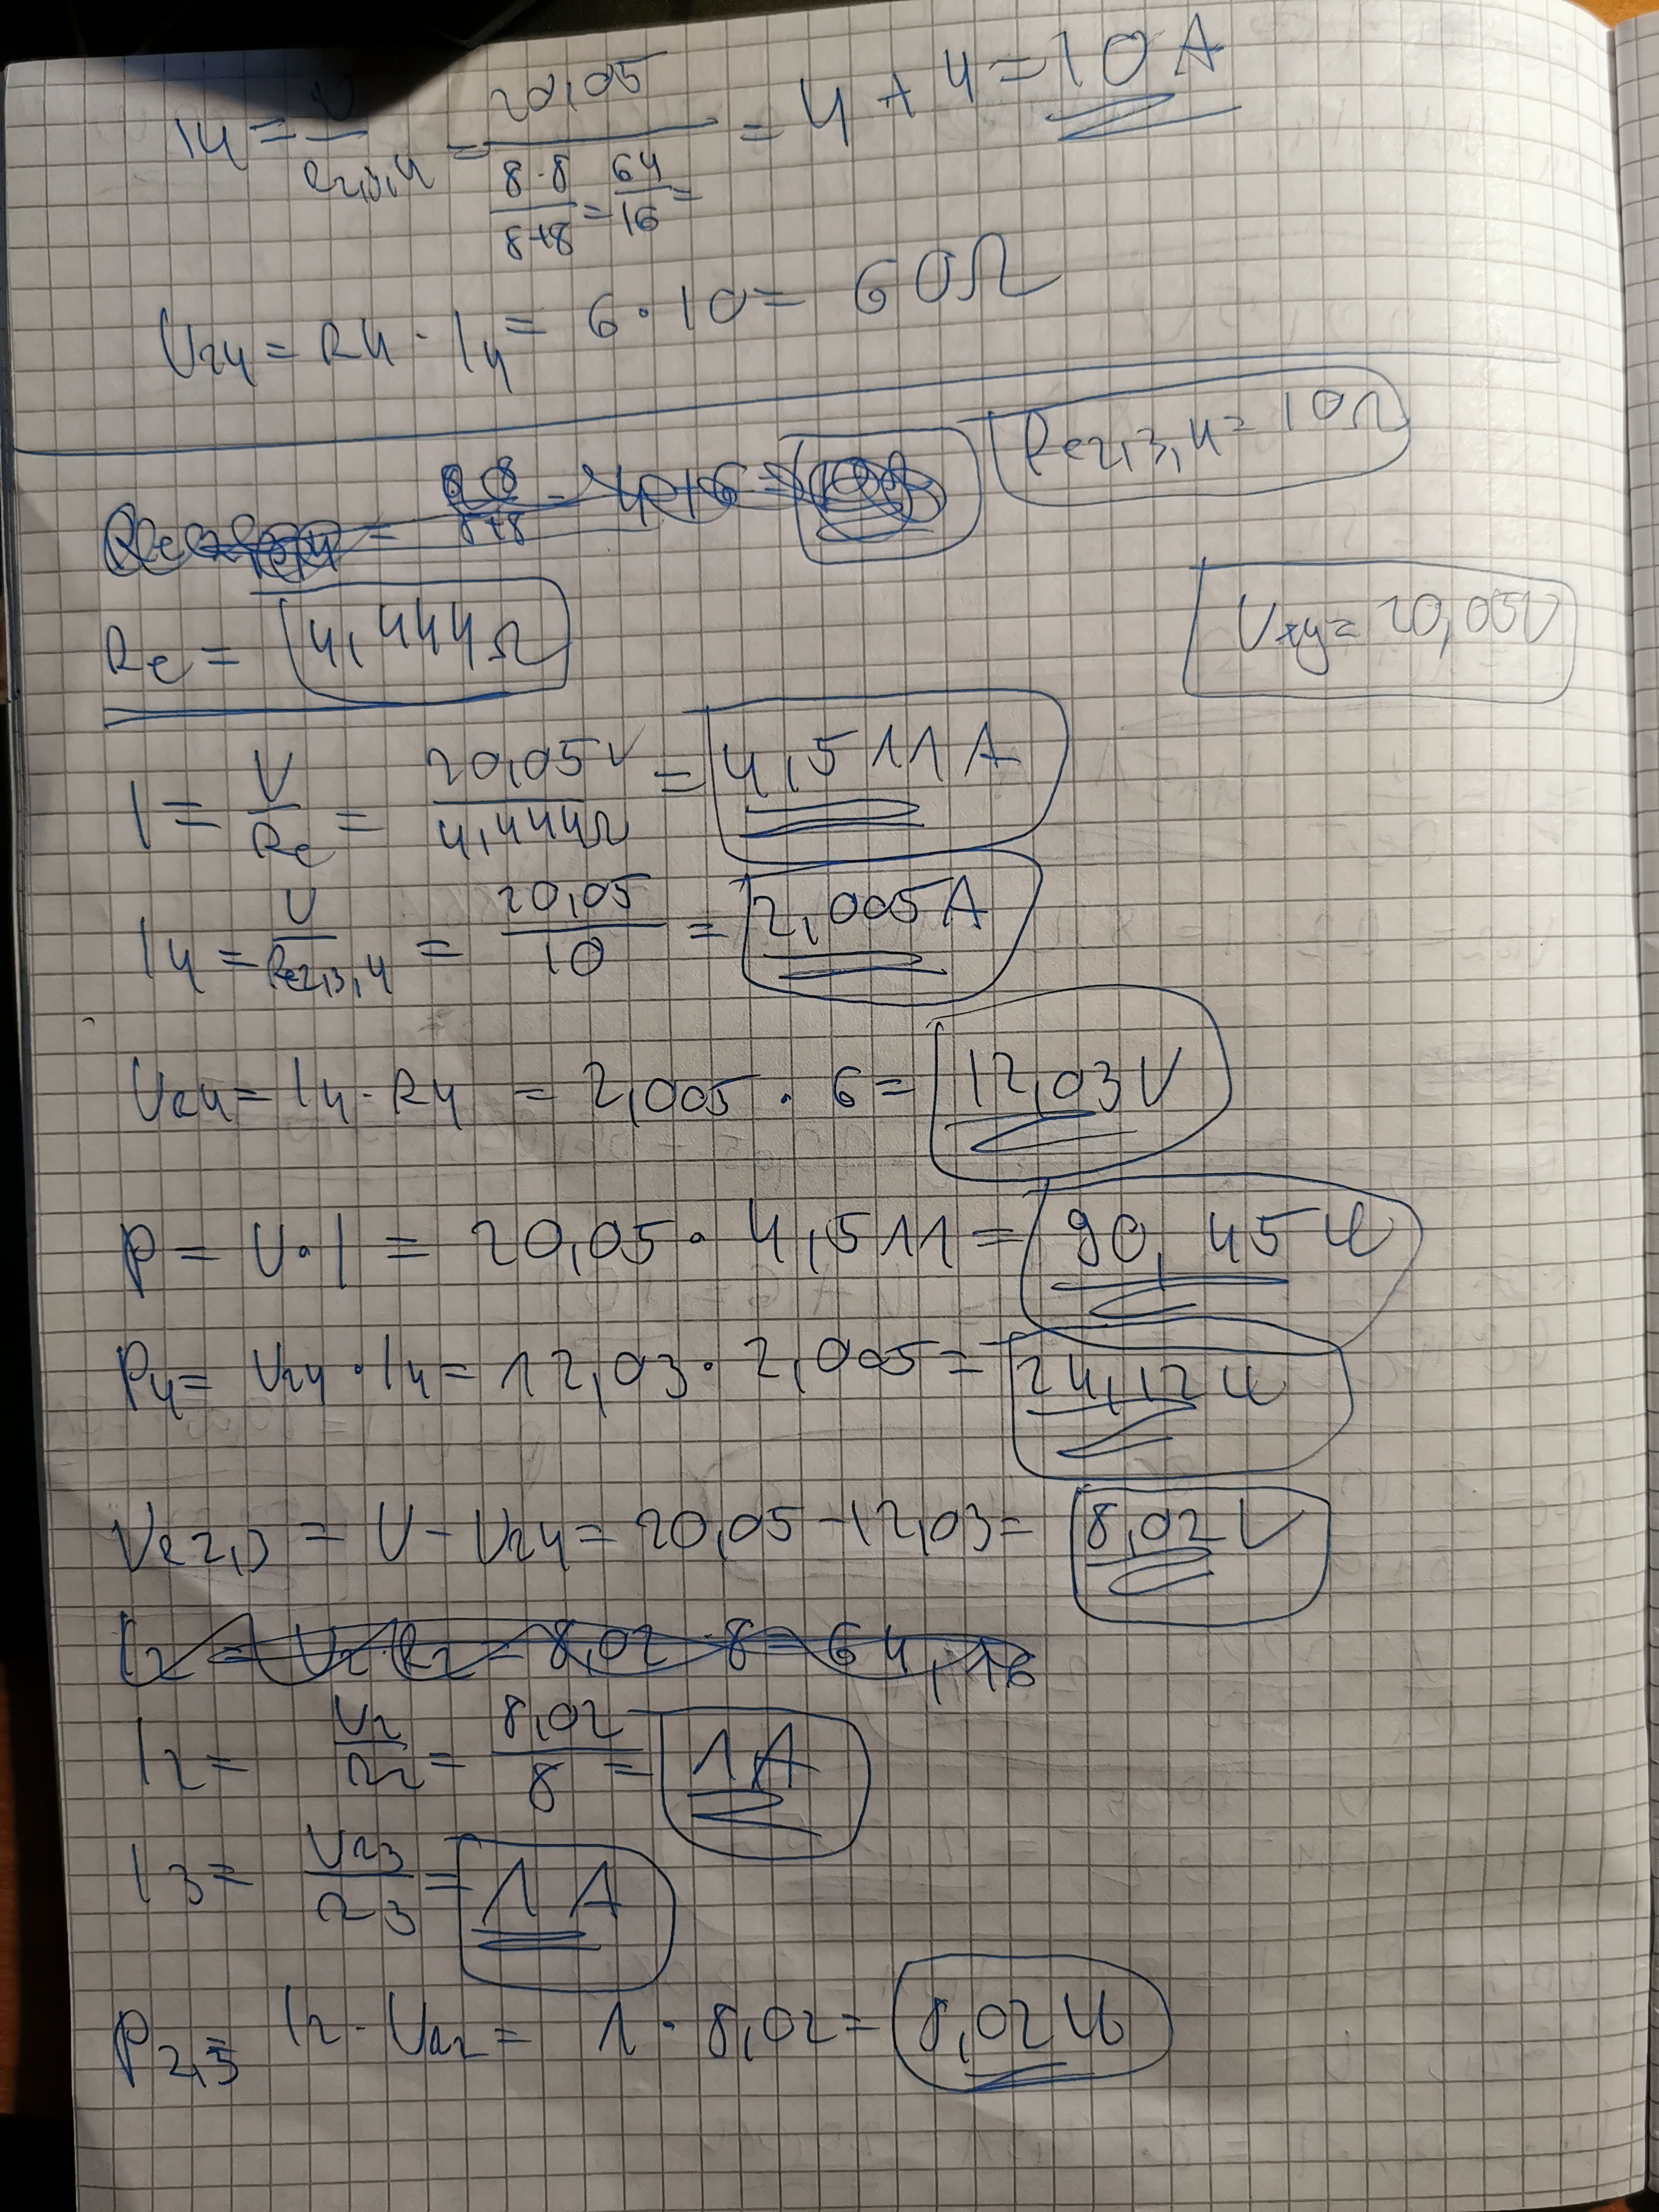 I4 = U / Re2,3,4 = 20,05 / (8·8 / 8+8 = 64 / 16 =) = 4 + 4 = 10 A
UR4 = R4 · I4 = 6 · 10 = 60Ω
Re2,3,4 = 10Ω
8·8 / 8+8 = 4+6 =
Re = 4,444Ω
Uxy = 20,05V
I = U / Re = 20,05V / 4,444Ω = 4,511 A
I4 = U / Re2,3,4 = 20,05 / 10 = 2,005A
UR4 = I4 · R4 = 2,005 · 6 = 12,03V
P = U · I = 20,05 · 4,511 = 90,45 W
P4 = UR4 · I4 = 12,03 · 2,005 = 24,12 W
UR2,3 = U - UR4 = 20,05 - 12,03 = 8,02 V
I2 = U2·R2 = 8,02 · 8 = 64,16
I2 = U2 / R2 = 8,02 / 8 = 1A
I3 = UR3 / R3 = 1 A
P2,3 = I2 · UR2 = 1 · 8,02 = 8,02 W